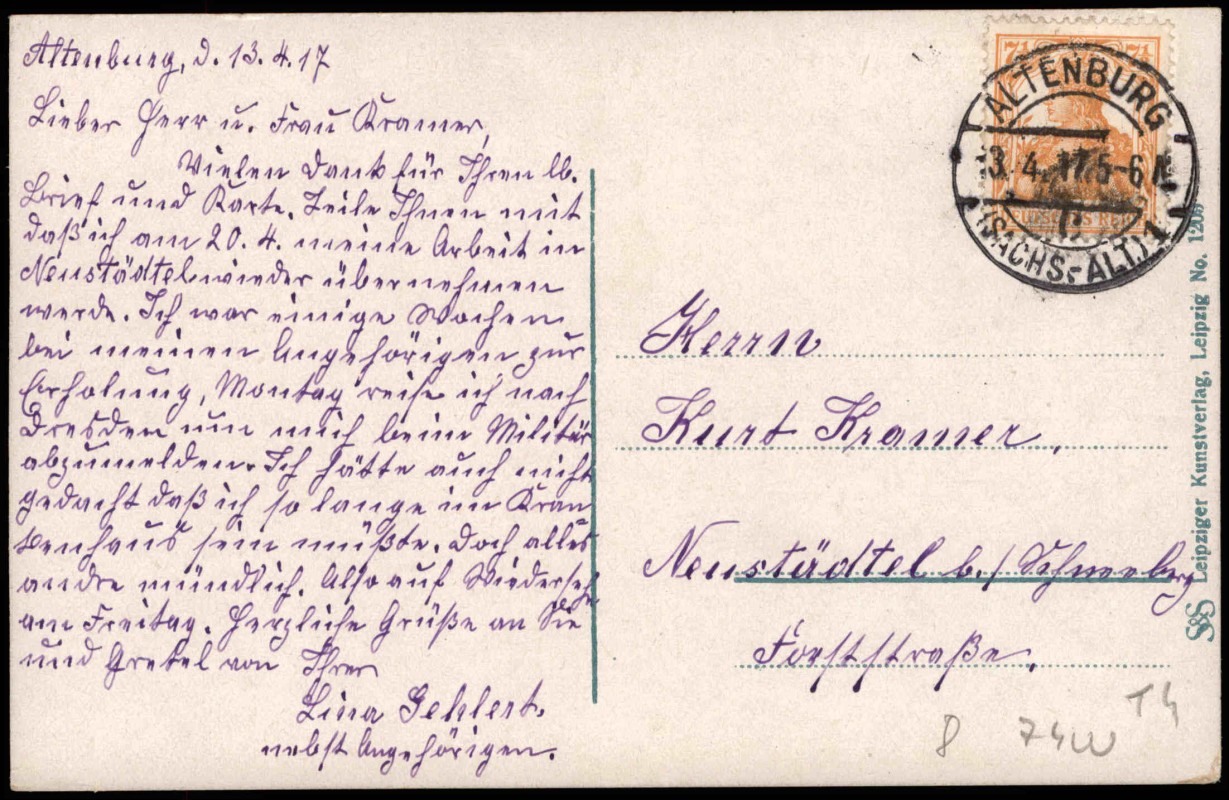 Altenburg, d. 13.4.17
Lieber Herr u. Frau Kramer,
Vielen Dank für Ihren lb.
Brief und Karte. Teile Ihnen mit
daß ich am 20.4. meine Arbeit in
Neustädtel wieder übernehmen
werde. Ich war einige Wochen
bei meinen Angehörigen zur
Erholung, Montag reise ich nach
Dresden um mich beim Militär
abzumelden. Ich hätte auch nicht
gedacht daß ich so lange im Kran
kenhaus sein müßte. Doch alles
andre mündlich. Also auf Wiederseh
am Freitag. Herzliche Grüße an Sie
und Gretel von Ihrer
Lina Gehlert.
nebst Angehörigen.
7½ 7½
ALTENBURG
13.4.17.5-6N.
(SACHS.-ALT.) 1
Herrn
Kurt Kramer,
Neustädtel b./Schneeberg
Forststraße.
S&S Leipziger Kunstverlag, Leipzig No.
8 74W T4